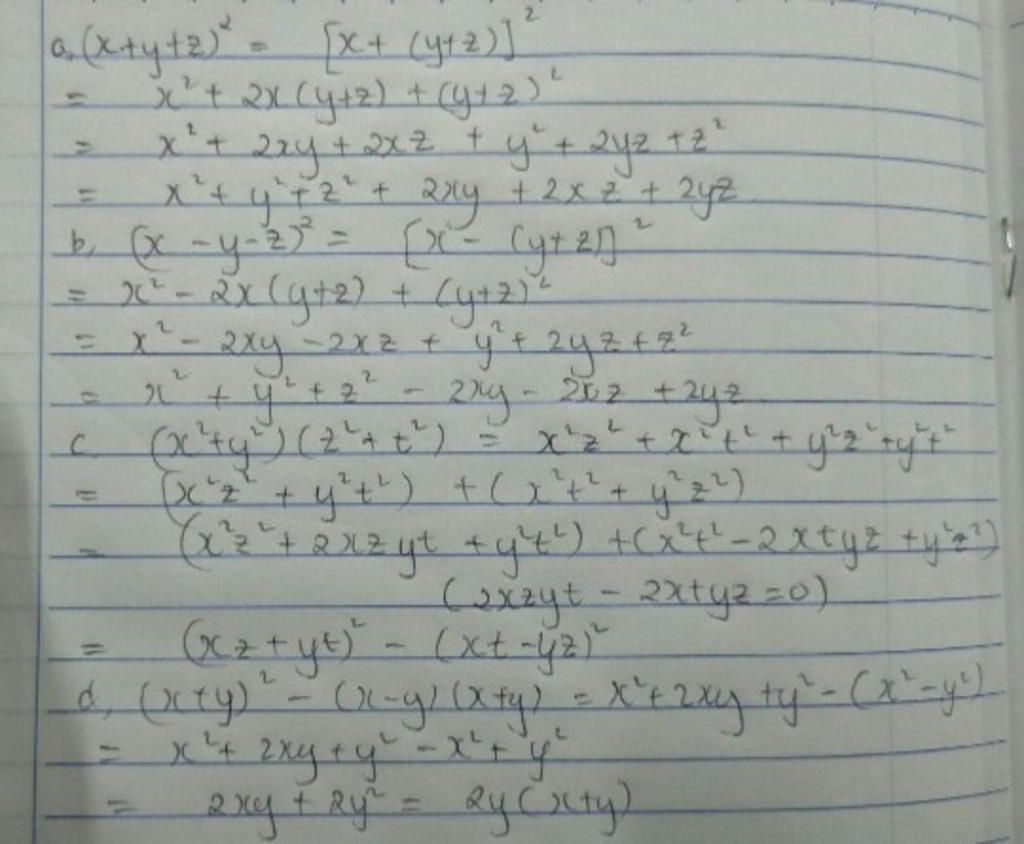 a, (x+y+z)² = [x+ (y+z)]²
= x² + 2x(y+z) + (y+z)²
= x² + 2xy + 2xz + y² + 2yz + z²
= x² + y² + z² + 2xy + 2xz + 2yz
b, (x - y - z)² = [x - (y+z)]²
= x² - 2x(y+z) + (y+z)²
= x² - 2xy - 2xz + y² + 2yz + z²
= x² + y² + z² - 2xy - 2xz + 2yz
c (x²+y²)(z²+t²) = x²z² + x²t² + y²z² + y²t²
= (x²z² + y²t²) + (x²t² + y²z²)
= (x²z² + 2xzyt + y²t²) + (x²t² - 2xtyz + y²z²)
(2xzyt - 2xtyz = 0)
= (xz + yt)² - (xt - yz)²
d, (x+y)² - (x-y)(x+y) = x² + 2xy + y² - (x² - y²)
= x² + 2xy + y² - x² + y²
= 2xy + 2y² = 2y(x+y)